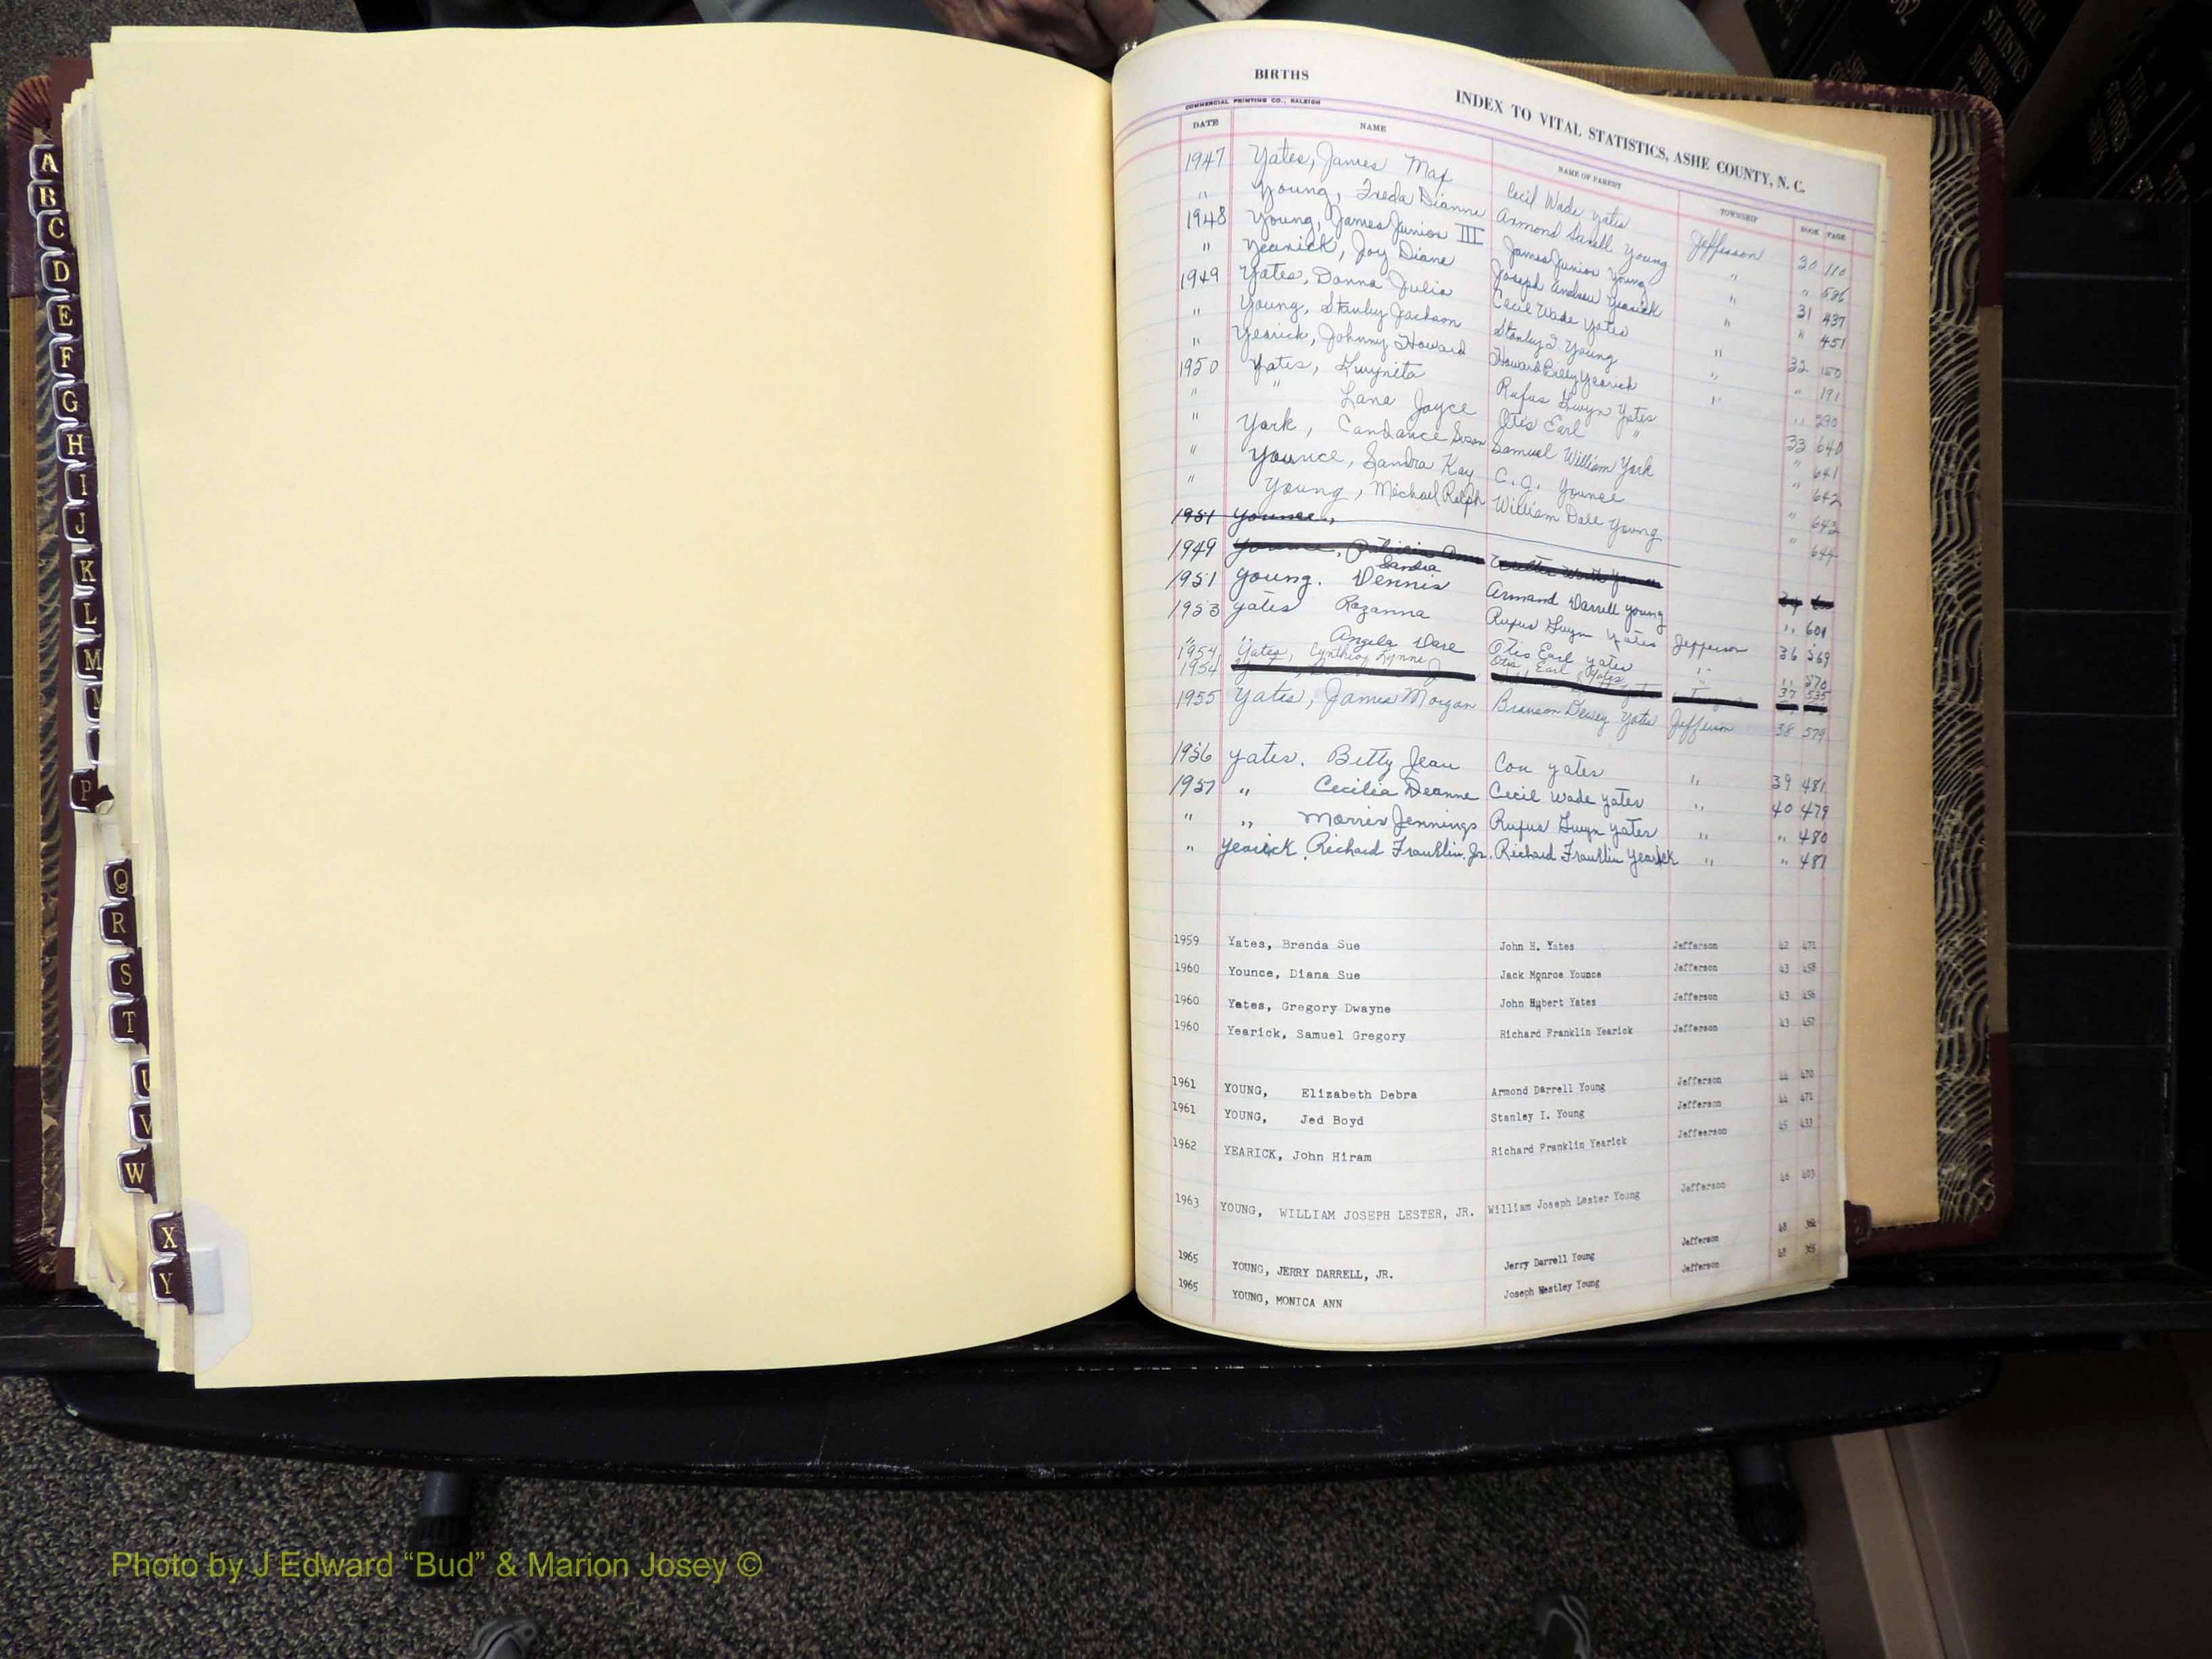 A
B
C
D
E
F
G
H
I
J
K
L
M
P
Q
R
S
T
U
V
W
X
Y
VITAL STATISTICS
BIRTHS
COMMERCIAL PRINTING CO., RALEIGH
INDEX TO VITAL STATISTICS, ASHE COUNTY, N. C.
DATE NAME NAME OF PARENT TOWNSHIP BOOK PAGE
1947 Yates, James Max Cecil Wade Yates Jefferson 30 110
" Young, Freda Dianne Armond Darell Young " " 586
1948 Young, James Junior III James Junior Young " 31 437
" Yearick, Joy Diane Joseph Andrew Yearick " " 451
1949 Yates, Donna Julia Cecil Wade Yates " 32 150
" Young, Stanley Jackson Stanley I. Young " " 191
" Yearick, Johnny Howard Howard Billy Yearick " " 290
1950 Yates, Gwynita Rufus Gwyn Yates 33 640
" " Lana Joyce Otis Earl " " 641
" York, Candance Susan Samuel William York " 642
" Younce, Sandra Kay C. G. Younce " 643
" Young, Michael Ralph William Dale Young " 644
1951 Younce,
1949
1951 Young. Sandra Dennis Armand Darrell Young " 601
1953 Yates Rozanna Rufus Gwyn Yates Jefferson 36 569
" " Angela Dare Otis Earl Yates " " 570
1954 Yates, Cynthia Lynne Otis Earl Yates " 37 535
1954
1955 Yates, James Morgan Branson Dewey Yates Jefferson 38 579
1956 Yates. Betty Jean Con Yates " 39 481
1957 " Cecilia Deanne Cecil Wade Yates " 40 479
" " Morris Jennings Rufus Gwyn Yates " " 480
" Yearick. Richard Franklin. Jr. Richard Franklin Yearick " " 481
1959 Yates, Brenda Sue John H. Yates Jefferson 42 471
1960 Younce, Diana Sue Jack Monroe Younce Jefferson 43 458
1960 Yates, Gregory Dwayne John Hubert Yates Jefferson 43 456
1960 Yearick, Samuel Gregory Richard Franklin Yearick Jefferson 43 457
1961 YOUNG, Elizabeth Debra Armond Darrell Young Jefferson 44 470
1961 YOUNG, Jed Boyd Stanley I. Young Jefferson 44 471
1962 YEARICK, John Hiram Richard Franklin Yearick Jeffeerson 45 433
1963 YOUNG, WILLIAM JOSEPH LESTER, JR. William Joseph Lester Young Jefferson 46 403
1965 YOUNG, JERRY DARRELL, JR. Jerry Darrell Young Jefferson 48
1965 YOUNG, MONICA ANN Joseph Westley Young Jefferson 48 365
Photo by J Edward “Bud” & Marion Josey ©